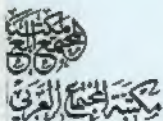 مكتبة
المجتمع العربي
مكتبة المجتمع العربي